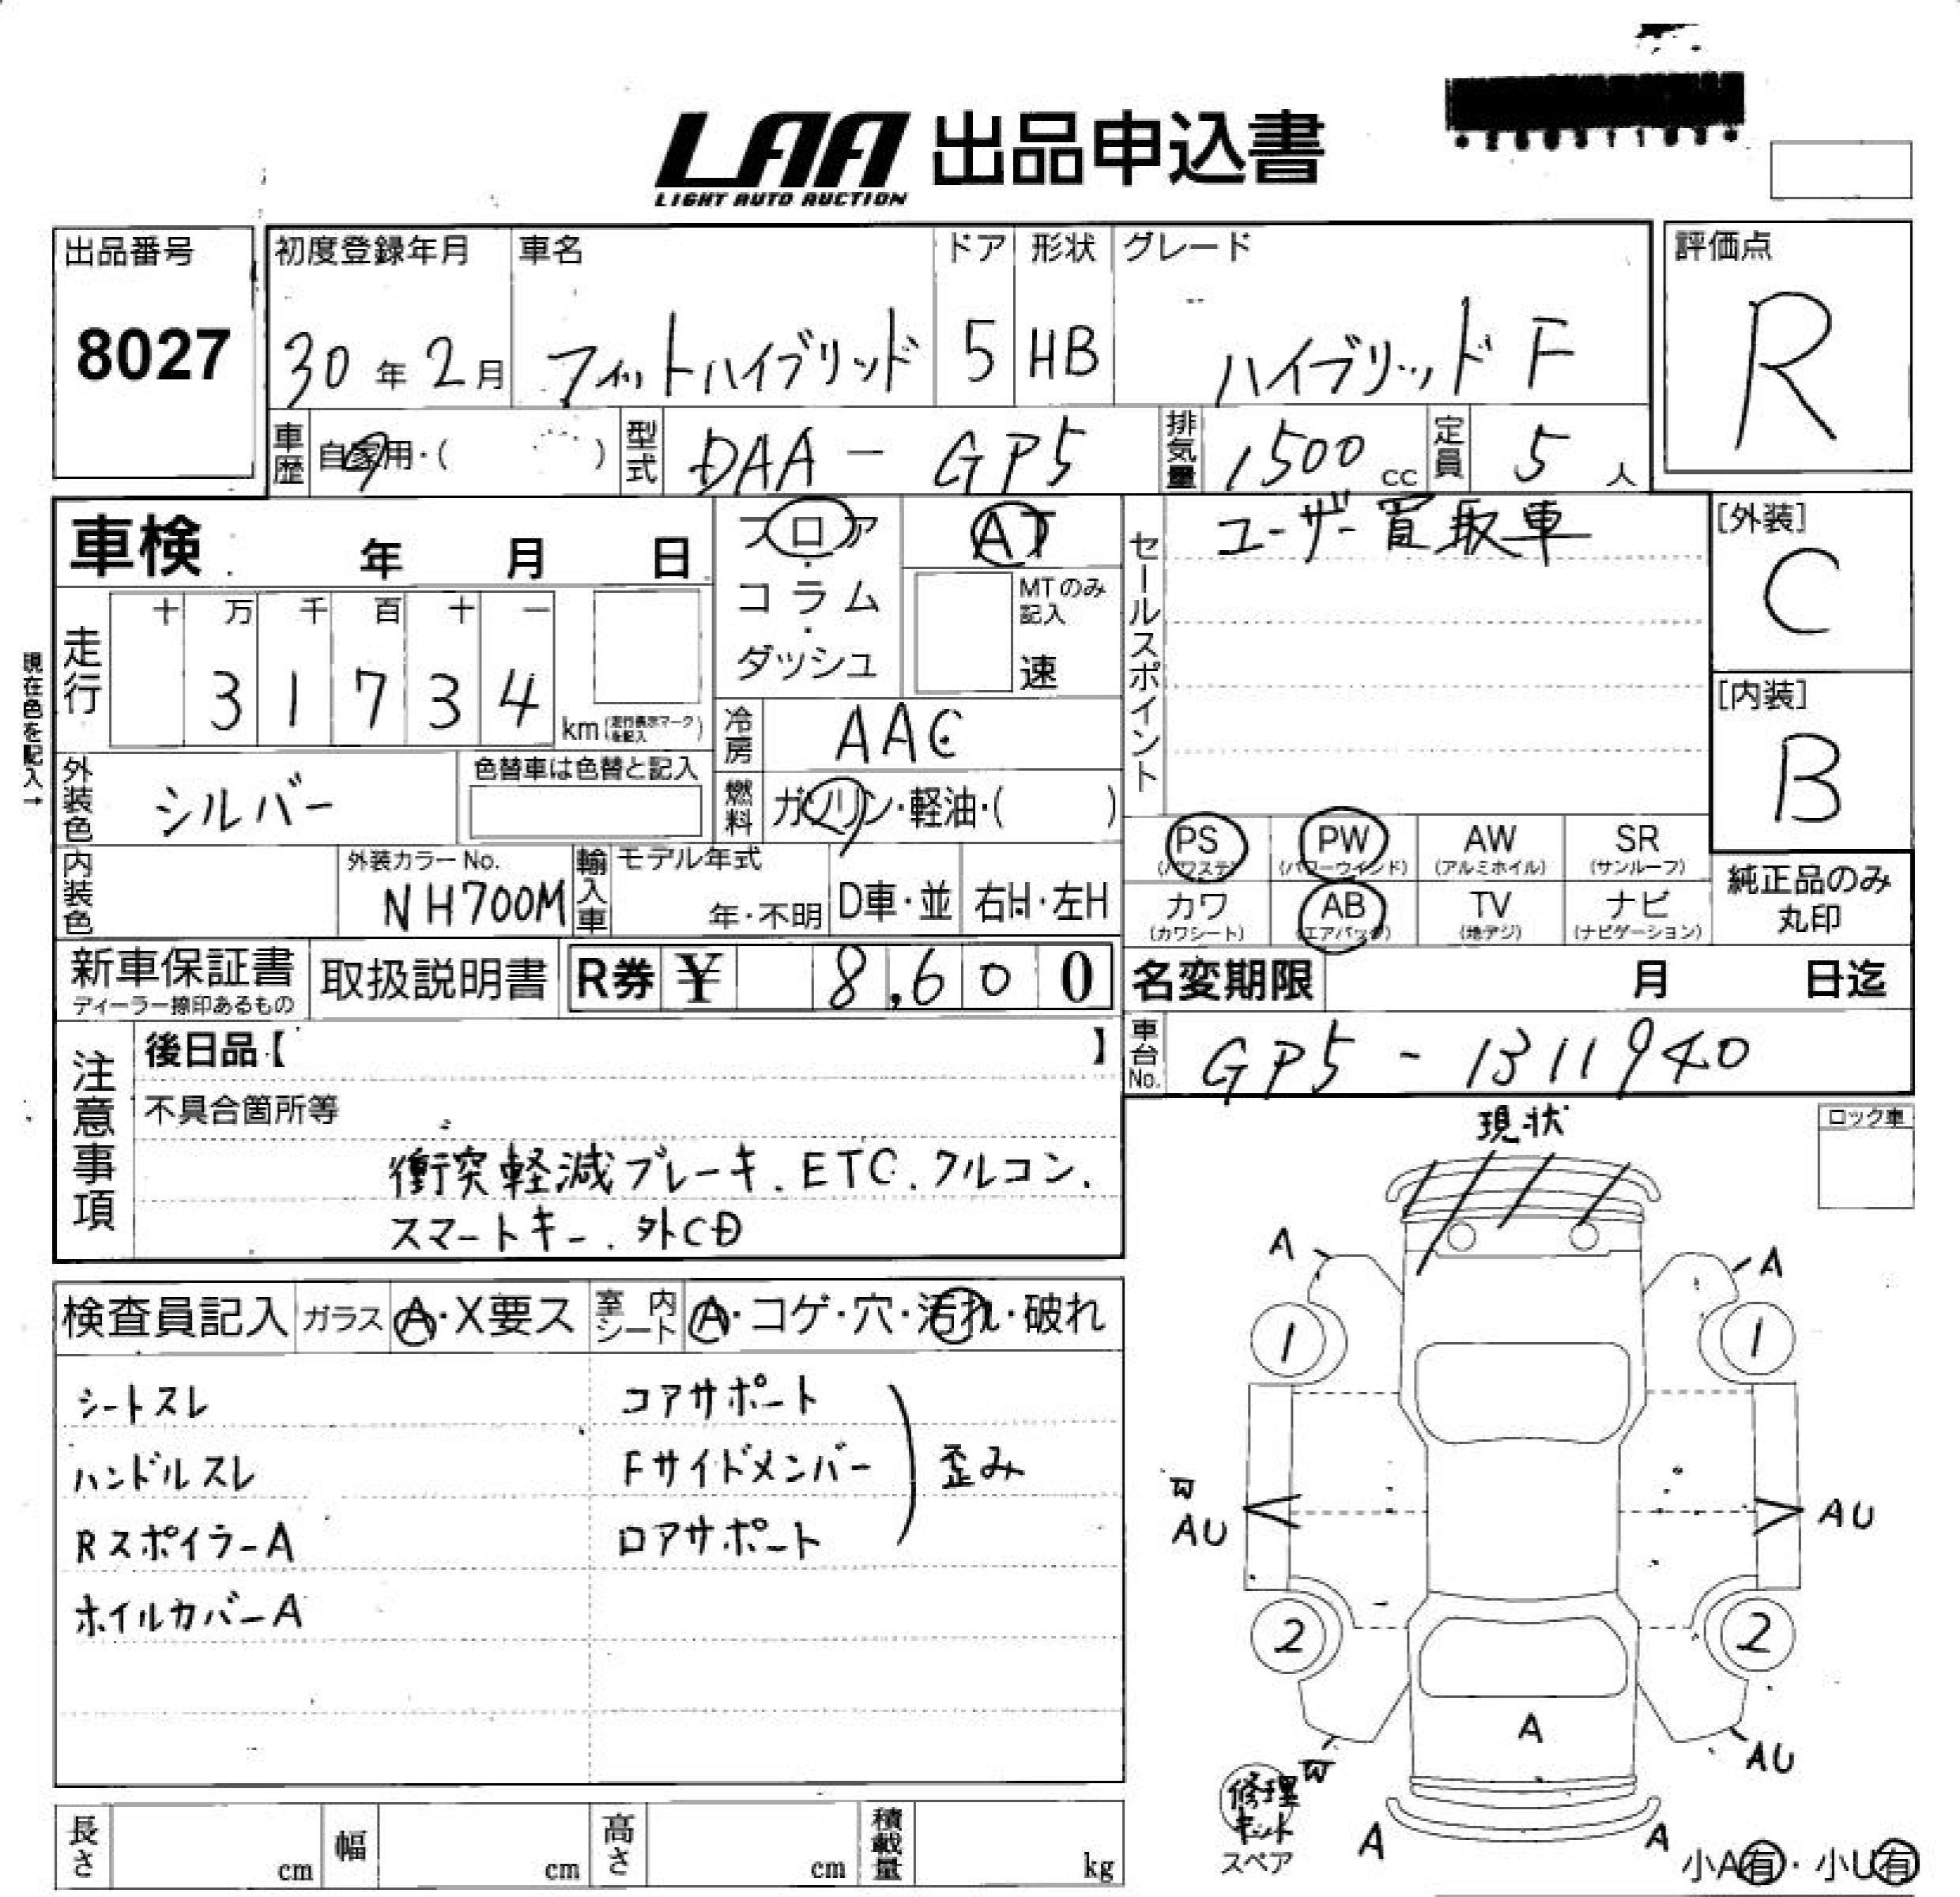 LAA 出品申込書
LIGHT AUTO AUCTION
出品番号
8027
初度登録年月
30年2月
車名
フィットハイブリッド
ドア
5
形状
HB
グレード
ハイブリッド F
評価点
R
車歴
自家用・( )
型式
DAA - GP5
排気量
1500 cc
定員
5 人
車検 年 月 日
フロア・コラム・ダッシュ
AT
MTのみ記入
速
セールスポイント
ユーザー買取車
[外装]
C
[内装]
B
現在色を記入→
走行
十 万 千 百 十 一
3 1 7 3 4 km (走行表示マークを記入)
冷房
AAC
燃料
ガソリン・軽油・( )
外装色
シルバー
色替車は色替と記入
PS (パワステ)
PW (パワーウインド)
AW (アルミホイル)
SR (サンルーフ)
カワ (カワシート)
AB (エアバッグ)
TV (地デジ)
ナビ (ナビゲーション)
純正品のみ
丸印
内装色
外装カラーNo.
NH700M
輸入車
モデル年式
年・不明
D車・並
右H・左H
新車保証書
ディーラー捺印あるもの
取扱説明書
R券 ¥ 8,600
名変期限 月 日迄
車台No.
GP5 - 1311940
注意事項
後日品【 】
不具合箇所等
衝突軽減ブレーキ.ETC.クルコン.
スマートキー.外CD
現状
ロック車
検査員記入
ガラス
A・X要ス
室内シート
A・コゲ・穴・汚れ・破れ
シートスレ
ハンドルスレ
RスポイラーA
ホイルカバーA
コアサポート
Fサイドメンバー
ロアサポート
歪み
A
A
1
1
W
AU
AU
2
2
A
AU
W
修理キット
スペア
A
A
小A有・小U有
長さ cm
幅 cm
高さ cm
積載量 kg